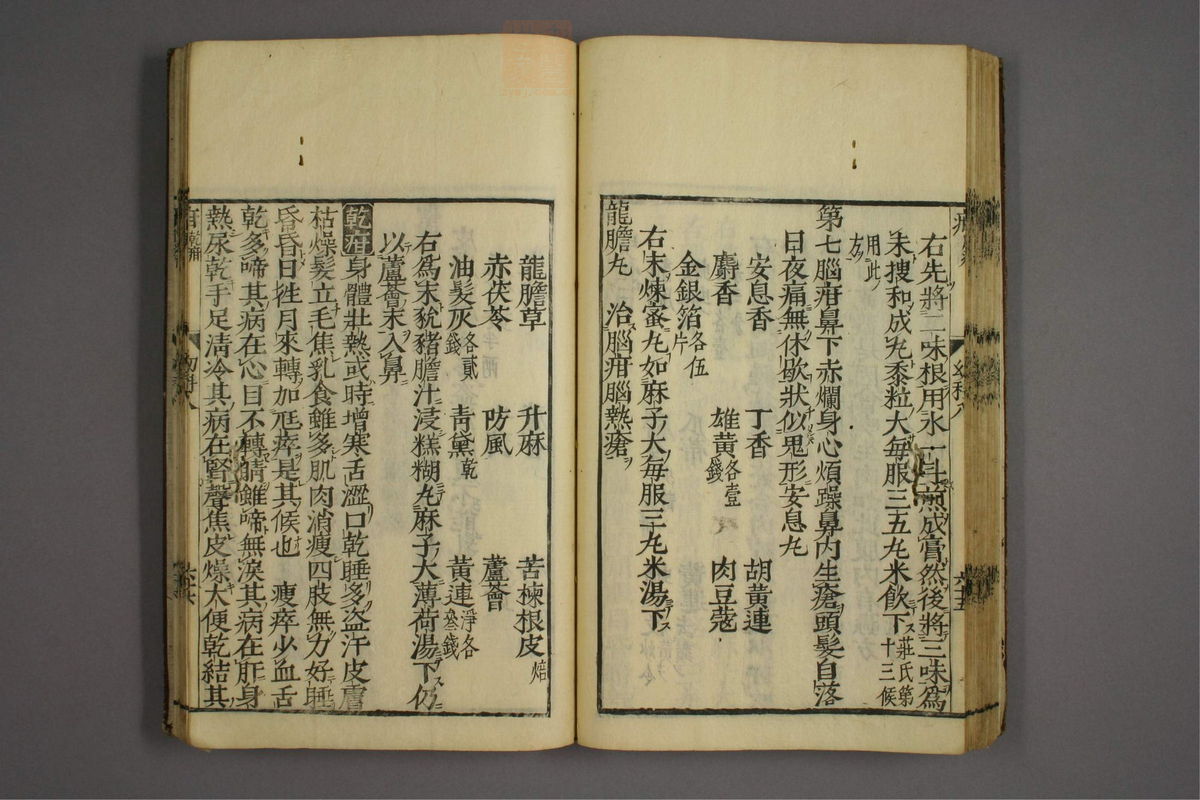 右先將二味根用水一斗煎成膏然後將三味爲
末搜和成丸黍粒大每服三五丸米飲下莊氏第十三候
用此
左
第七腦疳鼻下赤爛身心煩躁鼻内生瘡頭髮自落
日夜痛無休歇狀似鬼形安息丸
安息香 丁香 胡黃連
麝香 雄黃各壹錢 肉豆蔻
金銀箔各伍片
右末煉蜜丸如麻子大每服三丸米湯下
龍膽丸 治腦疳腦熱瘡
幼科八
六十五
龍膽草 升麻 苦楝根皮焙
赤茯苓 防風 蘆薈
油髮灰各貳錢 靑黛乾 黃連淨各叁錢
右爲末豬膽汁浸糕糊丸麻子大薄荷湯下仍
以蘆薈末入鼻
乾疳身體壯熱或時增寒舌澀口乾睡多盜汗皮膚
枯燥髮立毛焦乳食雖多肌肉消瘦四肢無力好睡
昏昏日徃月來轉加尫瘁是其候也 瘦瘁少血舌
乾多啼其病在心目不轉睛雖啼無淚其病在肝身
熱尿乾手足淸冷其病在腎聲焦皮燥大便乾結其
乾疳
幼科八
六十六